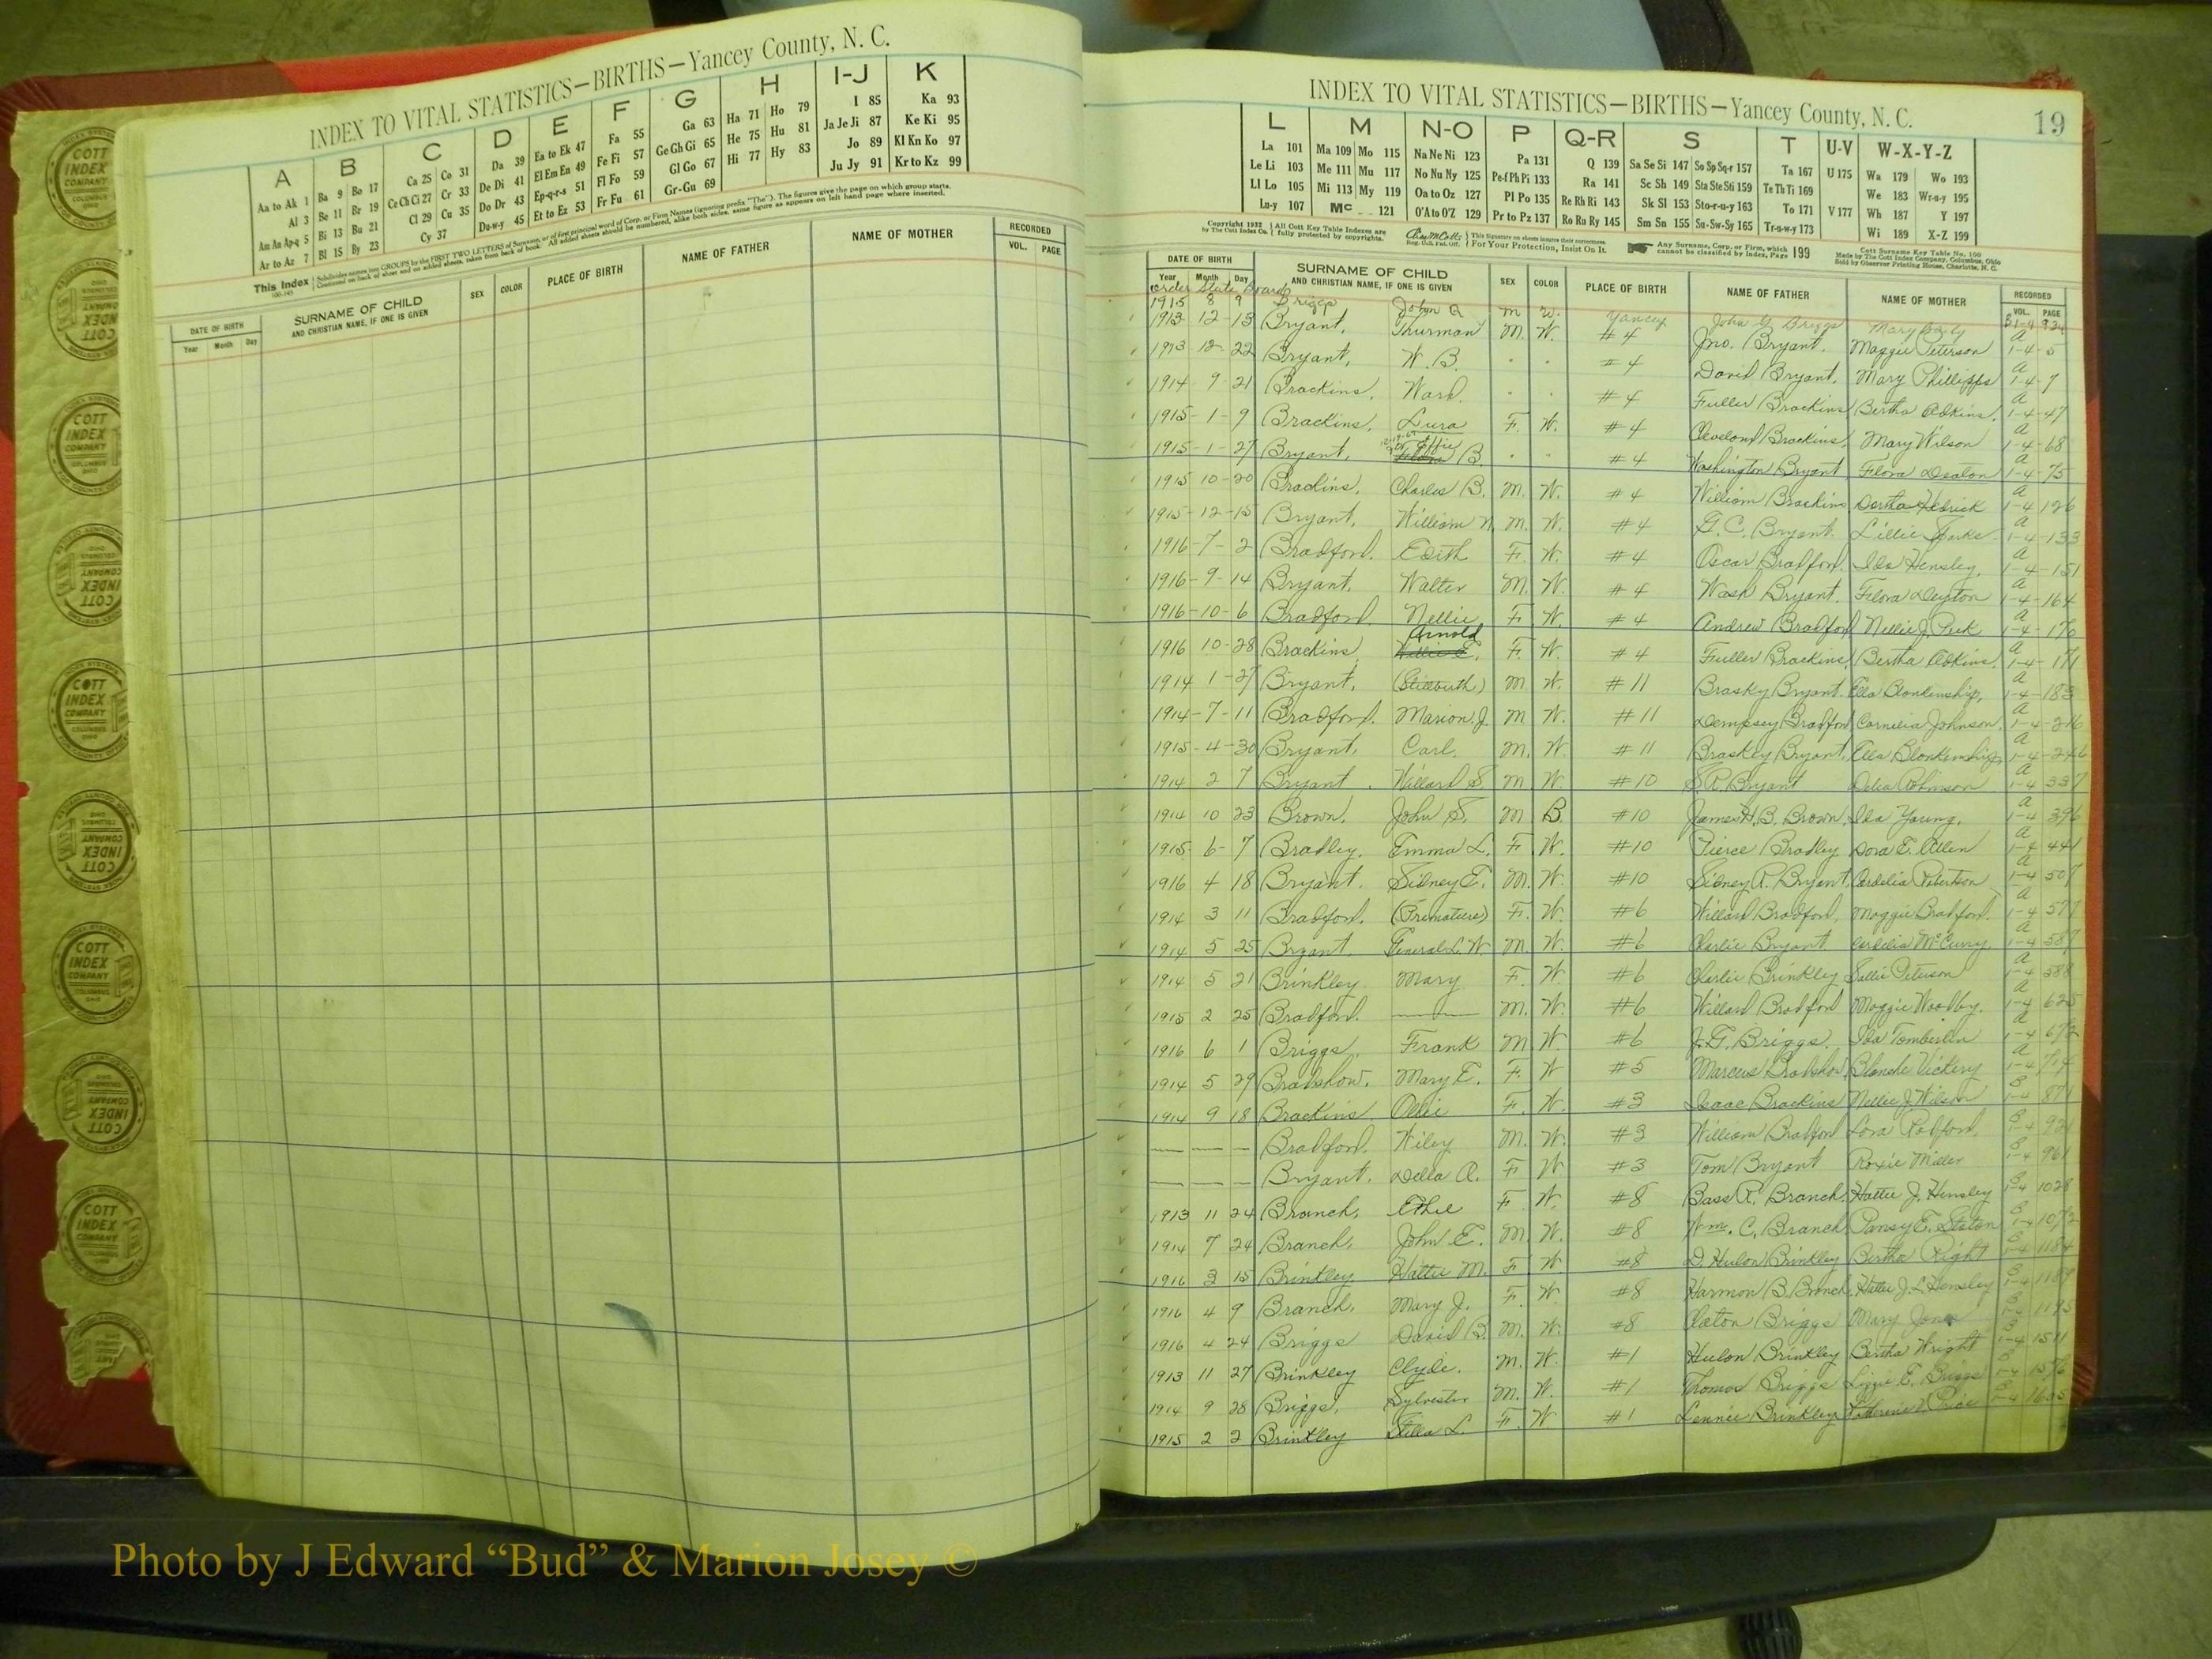 INDEX TO VITAL STATISTICS—BIRTHS—Yancey County, N. C.
A B C D E F G H I-J K
Aa to Ak 1 Ba 9 Bo 17 Ca 25 Co 31 Da 39 Ea to Ek 47 Fa 55 Ga 63 Ha 71 Ho 79 I 85 Ka 93
Al 3 Be 11 Br 19 Ce Ch Ci 27 Cr 33 De Di 41 El Em En 49 Fe Fi 57 Ge Gh Gi 65 He 75 Hu 81 Ja Je Ji 87 Ke Ki 95
Am An Ap-q 5 Bi 13 Bu 21 Cl 29 Cu 35 Do Dr 43 Ep-q-r-s 51 Fl Fo 59 Gl Go 67 Hi 77 Hy 83 Jo 89 Kl Kn Ko 97
Ar to Az 7 Bl 15 By 23 Cy 37 Du-w-y 45 Et to Ez 53 Fr Fu 61 Gr-Gu 69 Ju Jy 91 Kr to Kz 99
This Index
DATE OF BIRTH SURNAME OF CHILD SEX COLOR PLACE OF BIRTH NAME OF FATHER NAME OF MOTHER RECORDED
Year Month Day AND CHRISTIAN NAME, IF ONE IS GIVEN VOL. PAGE
INDEX TO VITAL STATISTICS—BIRTHS—Yancey County, N. C. 19
L M N-O P Q-R S T U-V W-X-Y-Z
La 101 Ma 109 Mo 115 Na Ne Ni 123 Pa 131 Q 139 Sa Se Si 147 So Sp Sq-r 157 Ta 167 U 175 Wa 179 Wo 193
Le Li 103 Me 111 Mu 117 No Nu Ny 125 Pe-f Ph Pi 133 Ra 141 Sc Sh 149 Sta Ste Sti 159 Te Th Ti 169 We 183 Wr-u-y 195
Ll Lo 105 Mi 113 My 119 Oa to Oz 127 Pl Po 135 Re Rh Ri 143 Sk Sl 153 Sto-r-u-y 163 To 171 V 177 Wh 187 Y 197
Lu-y 107 Mc 121 O'A to O'Z 129 Pr to Pz 137 Ro Ru Ry 145 Sm Sn 155 Su-Sw-Sy 165 Tr-u-w-y 173 Wi 189 X-Z 199
Copyright 1932 by The Cott Index Co. All Cott Key Table Indexes are fully protected by copyrights. For Your Protection, Insist On It. Any Surname, Corp. or Firm, which cannot be classified by Index, Page 199
DATE OF BIRTH SURNAME OF CHILD SEX COLOR PLACE OF BIRTH NAME OF FATHER NAME OF MOTHER RECORDED
Year Month Day AND CHRISTIAN NAME, IF ONE IS GIVEN VOL. PAGE
order State Board
1915 8 9 Briggs John G M W. Yancey John G Briggs Mary
1913 12-13 Bryant, Thurman M. W. #4 Jno. Bryant. Maggie Peterson A 1-4-5
1913 12-22 Bryant, W. B. " " #4 David Bryant, Mary Phillipps A 1-4-7
1914-9-21 Brackins, Ward. " " #4 Fuller Brackins Bertha Adkins. A 1-4-47
1915-1-9 Brackins, Lura F. W. #4 Cleveland Brackins Mary Wilson A 1-4-68
1915-1-27 Bryant, Effie B. " " #4 Washington Bryant Flora A 1-4-75
1915 10-20 Brackins, Charles B. M. W. #4 William Brackins A 1-4 126
1915-12-15 Bryant, William M. W. #4 G. C. Bryant. Lillie Sparks A 1-4-133
1916-7-2 Bradford. Edith F. W. #4 Oscar Bradford. Ida Hensley. A 1-4-151
1916-9-14 Bryant, Walter M. W. #4 Wash Bryant. Flora Deyton A 1-4-164
1916-10-6 Bradford. Nellie F. W. #4 Andrew Bradford Nellie J. Peek A 1-4-170
1916 10-28 Brackins Arnold F. W. #4 Fuller Brackins Bertha Adkins. A 1-4-171
1914 1-27 Bryant, (Stillbirth) M. W. #11 Brasky Bryant. Ella Blankenship, A 1-4-183
1914-7-11 Bradford. Marion. J. M W. #11 Dempsey Bradford Cornelia Johnson. A 1-4-216
1915-4-30 Bryant, Carl. M. W. #11 Braskey Bryant, Blankenship, A 1-4-246
1914 2 7 Bryant. Willard S. M W. #10 S. R. Bryant Delia Robinson A 1-4 337
1914 10 23 Brown, John S. M B. #10 James H. B. Brown. Ida Young. A 1-4 396
1915 6-7 Bradley. Emma L. F W. #10 Pierce Bradley Dora E. Allen A 1-4 441
1916 4 18 Bryant. Sidney E. M. W. #10 Sidney R. Bryant Cordelia Robertson A 1-4 507
1914 3 11 Bradford. (Premature) F. W. #6 Willard Bradford, Maggie Bradford. A 1-4 577
1914 5 25 Bryant. General L. W M W. #6 Charlie Bryant. Cordelia McCurry. A 1-4 587
1914 5 21 Brinkley. Mary F. W. #6 Charlie Brinkley Sallie Peterson A 1-4 588
1915 2 25 Bradford. —— M. W. #6 Willard Bradford Maggie Woodby. A 1-4 625
1916 6 1 Briggs, Frank M W #6 J. G. Briggs. Ida Tomberlin A 1-4 678
1914 5 29 Bradshow. Mary E. F. W #5 Marcus Bradshow Blanche Vickery A 1-4
1914 9 18 Brackins Ollie F. W. #3 Isaac Brackins Nellie J. Wilson B 1-4 871
— — — Bradford. Wiley M. W. #3 William Bradford Radford. B 1-4 921
— — — Bryant. Della A. F W #3 Tom Bryant Roxie Miller B 1-4 961
1913 11 24 Branch, Ethie F W. #8 Bass R. Branch Hattie J. Hensley B 1-4 1028
1914 7 24 Branch, John E. M. W. #8 Wm. C. Branch Pansy E. B 1-4 1072
1916 3 15 Brinkley Hattie M. F W. #8 D. Hulon Brinkley Bertha Right B 1-4 1184
1916 4 9 Branch. Mary J. F. W. #8 Harmon B. Branch. Hattie J. L. Hensley B 1-4 1189
1916 4 24 Briggs David B. M. W. #8 Briggs Mary Jones B 1-4 1195
1913 11 27 Brinkley Clyde. M. W. #1 Hulon Brinkley Bertha Wright B 1-4 1511
1914 9 28 Briggs, Sylvester M. W. #1 Thomas Briggs Lizzie E. Briggs B 1-4 1576
1915 2 2 Brinkley Stella L. F. W #1 Lennie Brinkley Price B 1-4 1605
COTT INDEX COMPANY COLUMBUS OHIO
Photo by J Edward “Bud” & Marion Josey ©